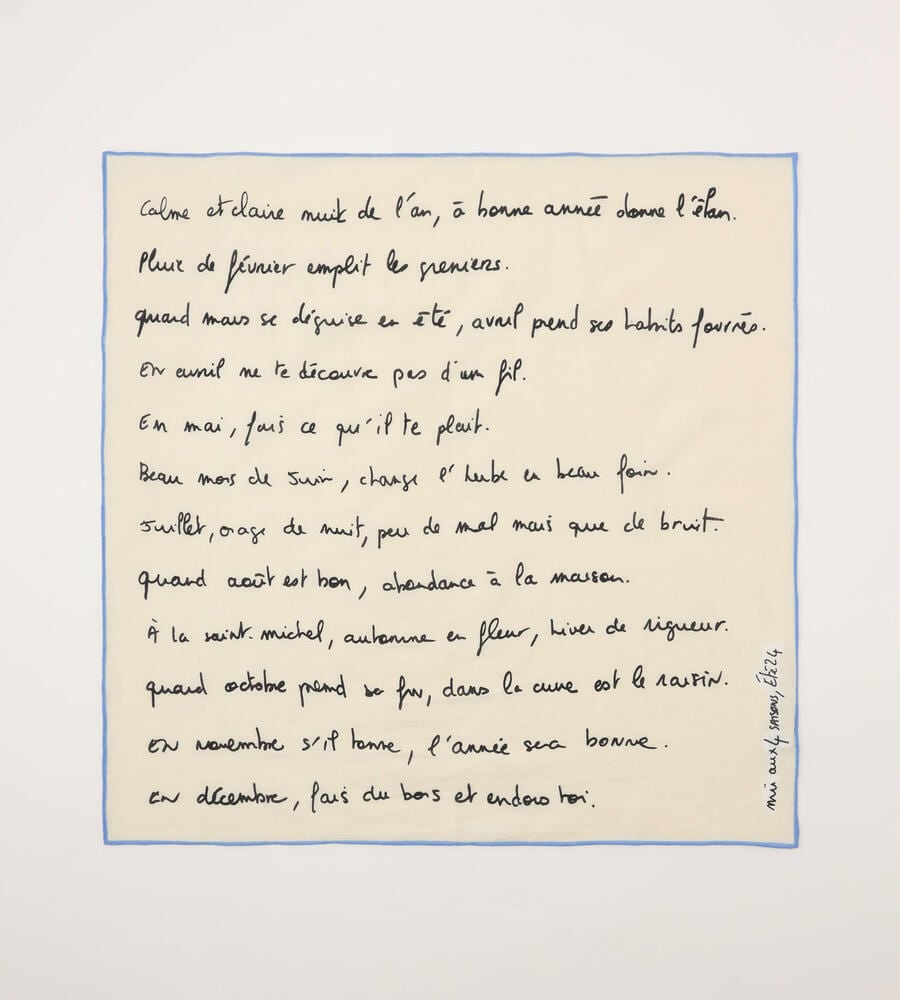 Calme et claire nuit de l'an, à bonne année donne l'élan.
Pluie de février emplit les greniers.
quand mars se déguise en été, avril prend ses habits fourrés.
En avril ne te découvre pas d'un fil.
En mai, fais ce qu'il te plait.
Beau mois de Juin, change l'herbe en beau foin.
Juillet, orage de nuit, peu de mal mais que de bruit.
quand août est bon, abondance à la maison.
À la saint-michel, automne en fleur, hiver de rigueur.
quand octobre prend sa fin, dans la cuve est le raisin.
En novembre s'il tonne, l'année sera bonne.
En décembre, fais du bois et endors toi.
mii aux 4 saisons, Été 24